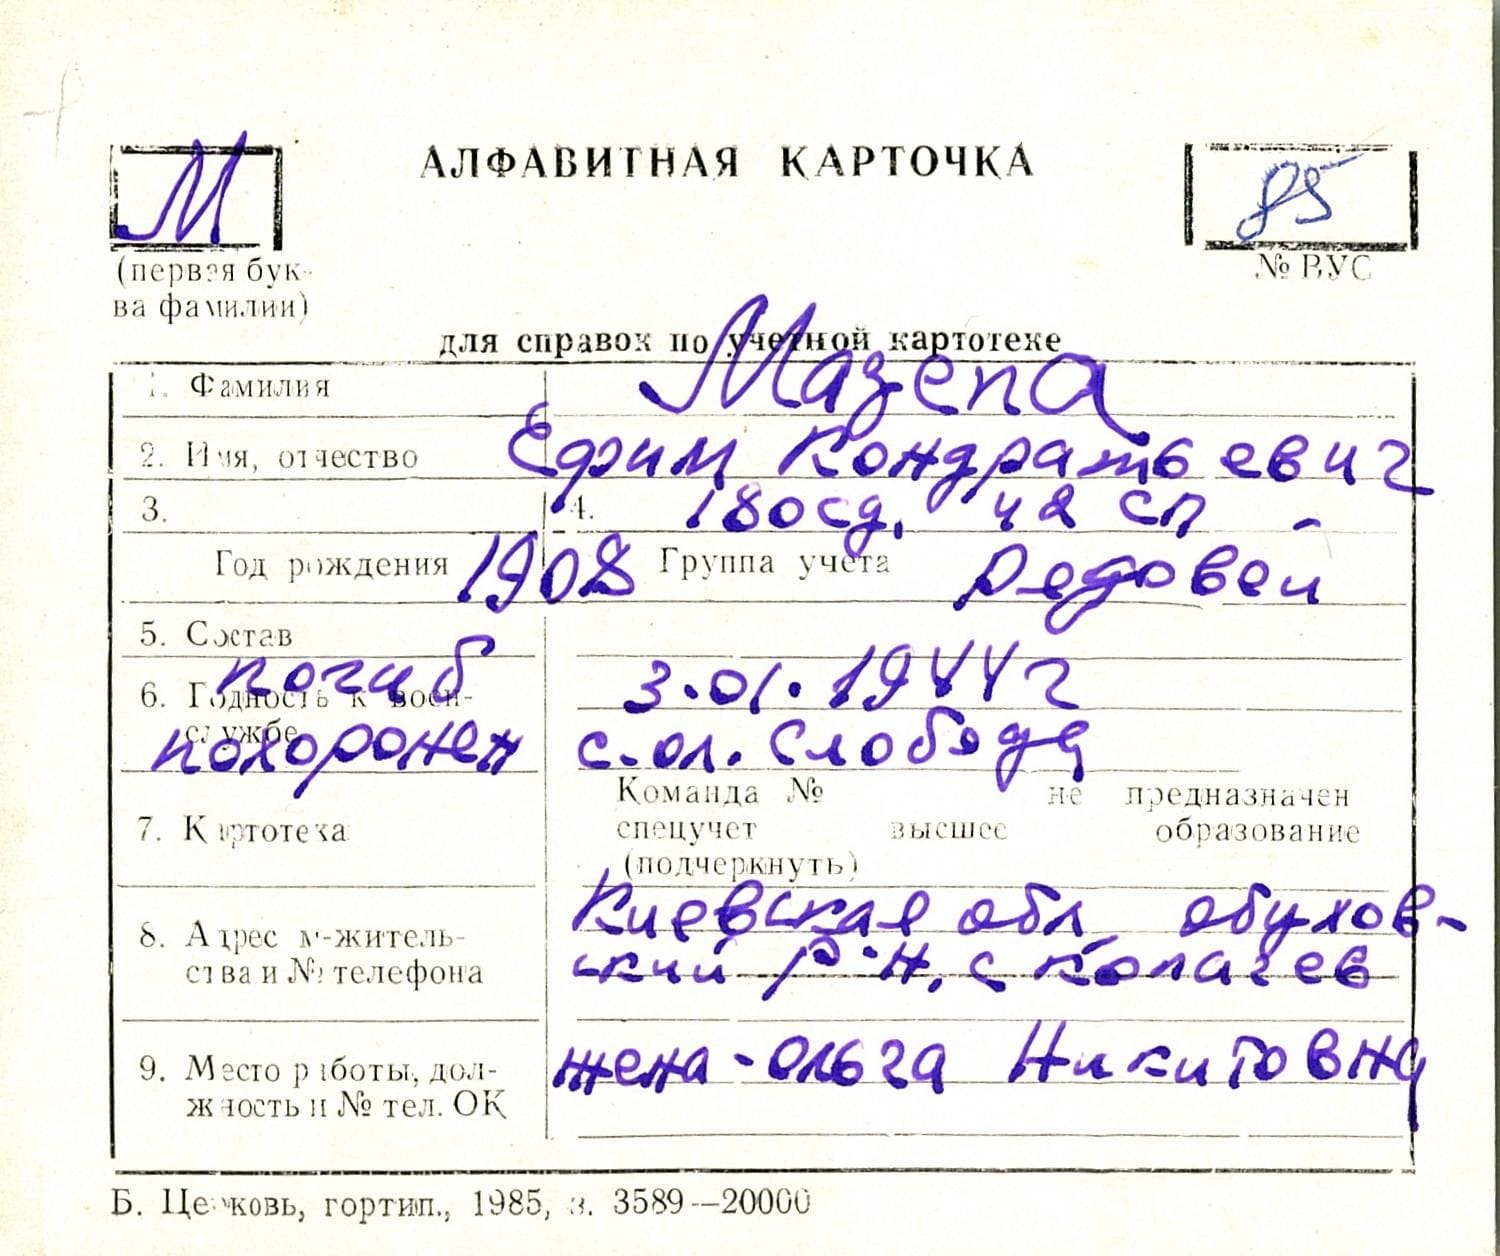 М
АЛФАВИТНАЯ КАРТОЧКА
85
(первая бук-
ва фамилии)
№ ВУС
для справок по учетной картотеке
1. Фамилия Мазепа
2. Имя, отчество Ефим Кондратьевич
3. 4. 180сд, 42 сп
Год рождения 1908 Группа учета Рядовой
5. Состав
погиб 3.01.1944г
6. Годность к воен-
службе
похоронен с.ол. Слобода
Команда № не предназначен
7. Картотека спецучет высшее образование
(подчеркнуть)
Киевская обл, обухов-
8. Адрес м-житель-
ства и № телефона
ский р-н, с Копачев
9. Место работы, дол-
жность и № тел. ОК
жена - Ольга Никитовна
Б. Церковь, гортип., 1985, з. 3589—20000